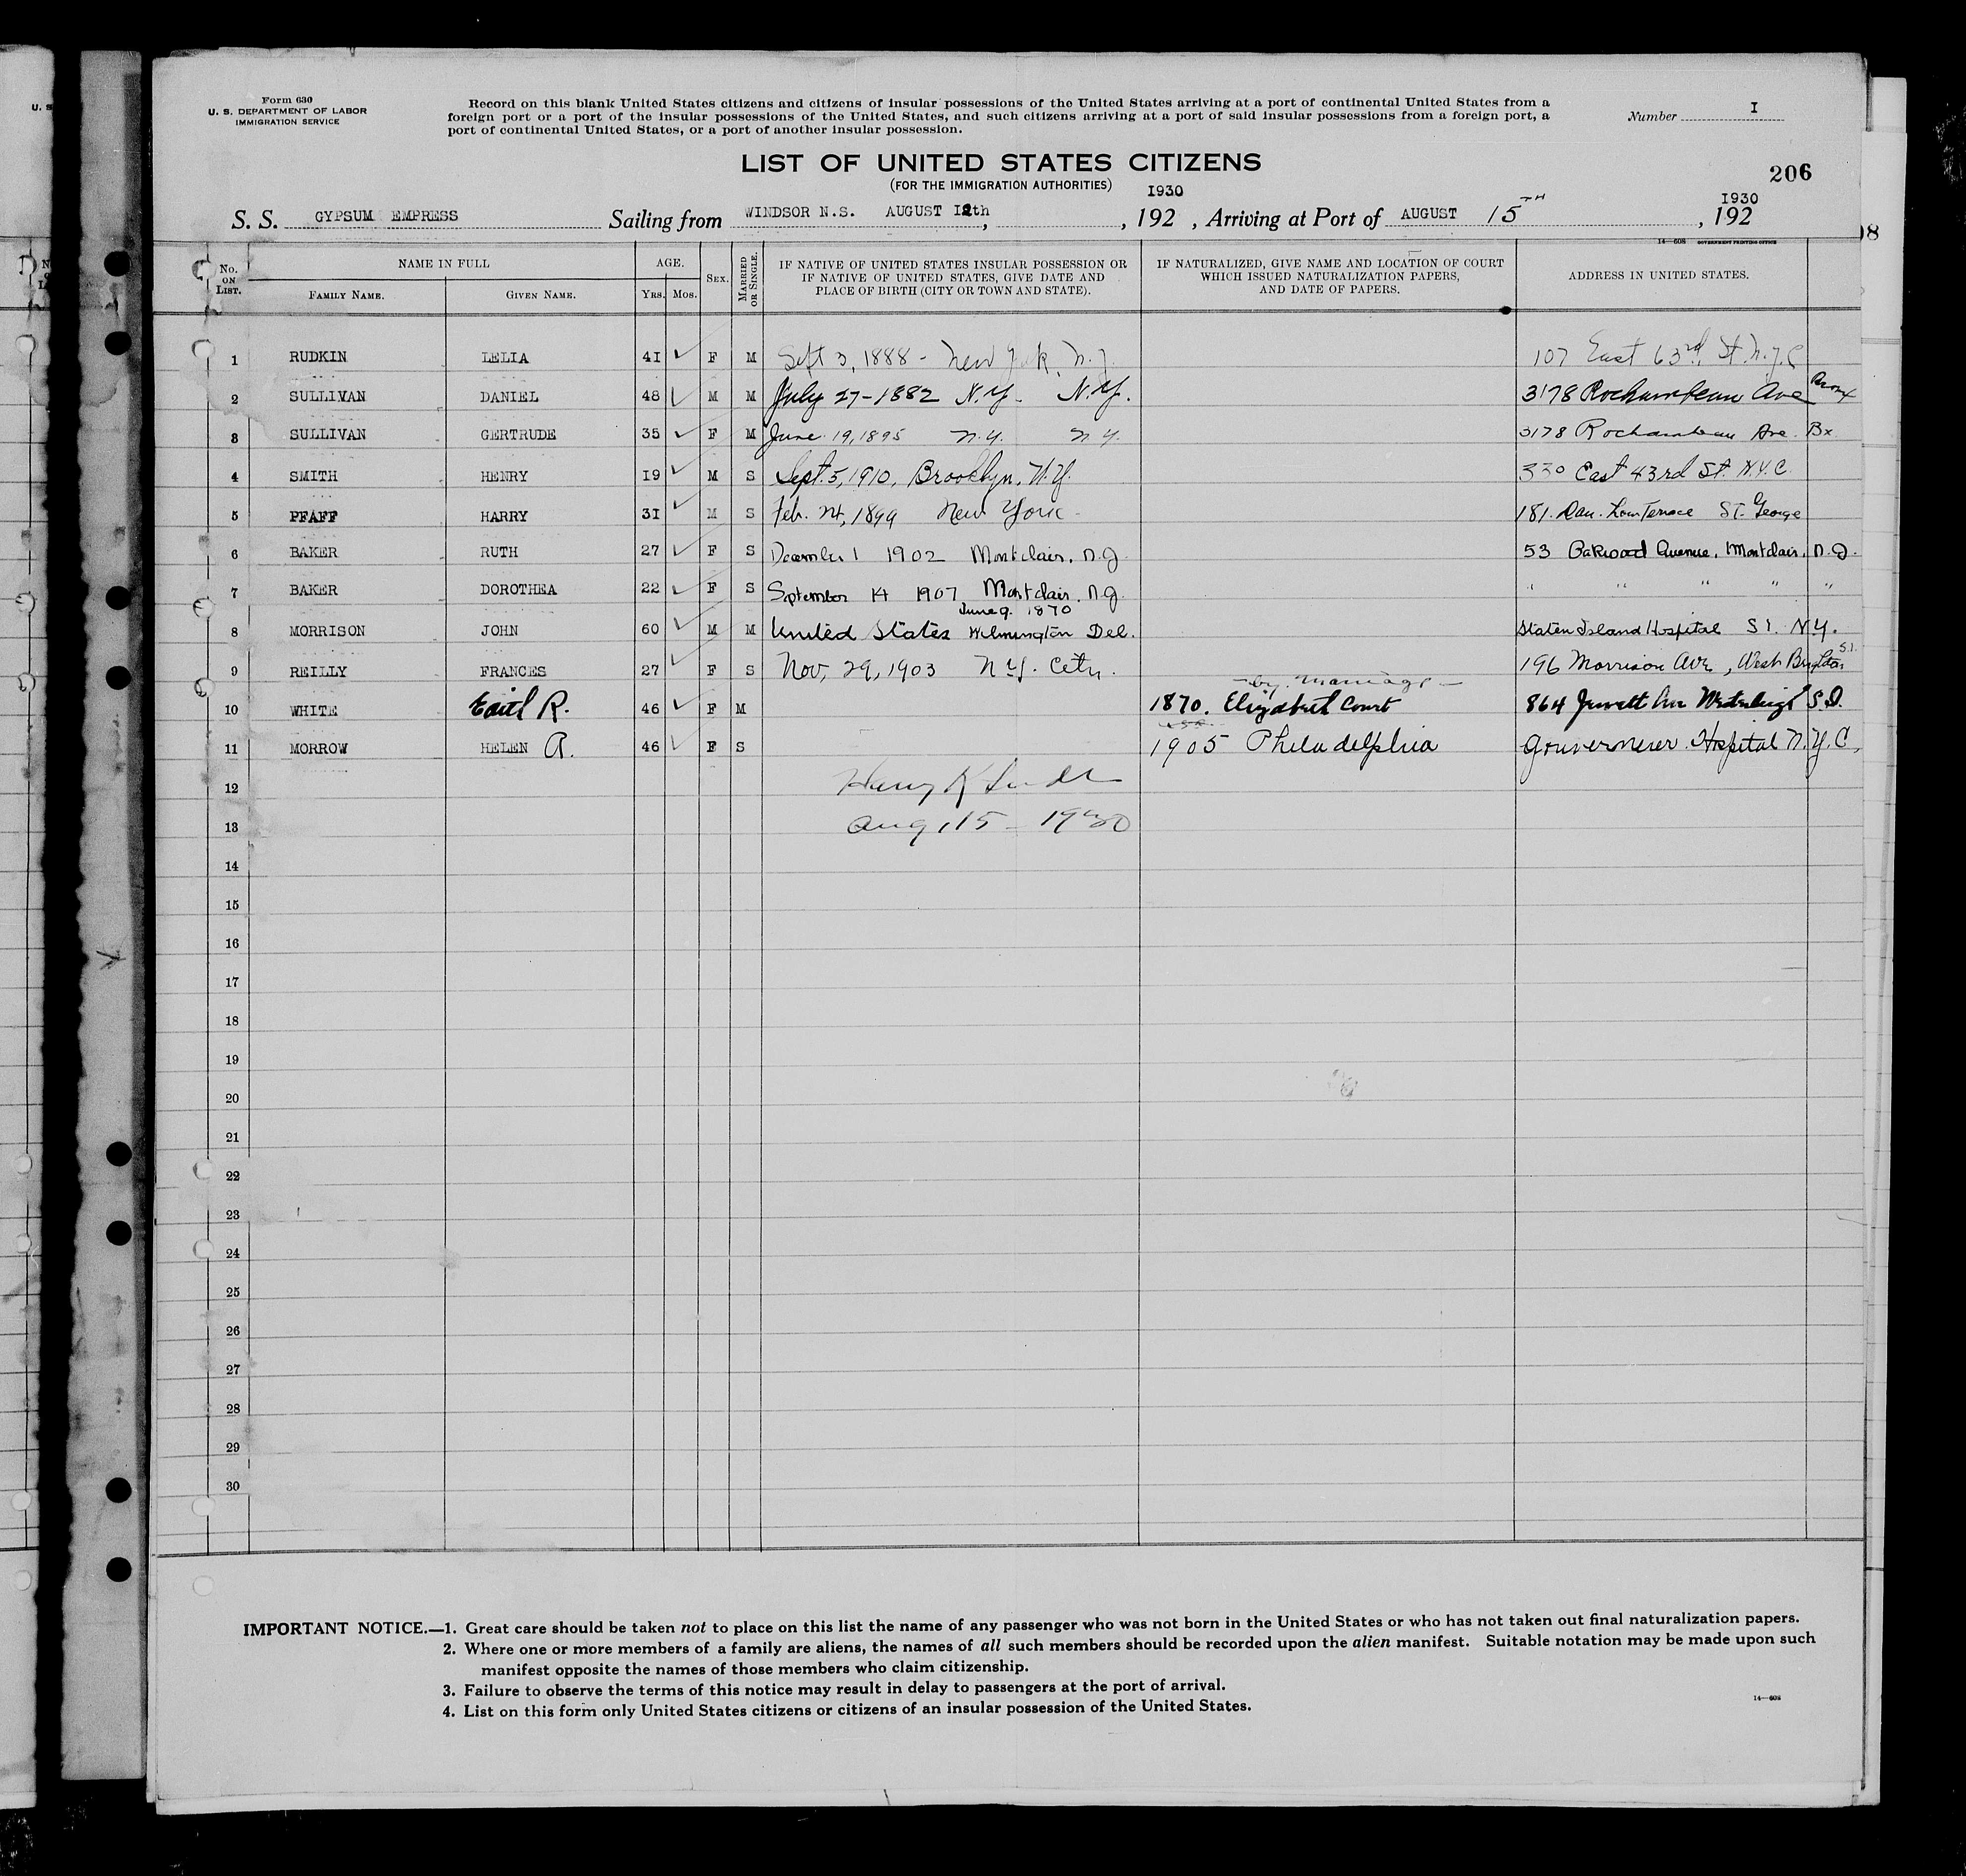 Form 630
U. S. DEPARTMENT OF LABOR
IMMIGRATION SERVICE
Record on this blank United States citizens and citizens of insular possessions of the United States arriving at a port of continental United States from a
foreign port or a port of the insular possessions of the United States, and such citizens arriving at a port of said insular possessions from a foreign port, a
port of continental United States, or a port of another insular possession.
Number I
LIST OF UNITED STATES CITIZENS
(FOR THE IMMIGRATION AUTHORITIES)
206
1930 1930
S. S. GYPSUM EMPRESS Sailing from WINDSOR N.S. AUGUST 12th, , 192 , Arriving at Port of AUGUST 15TH , 192
14—608 GOVERNMENT PRINTING OFFICE
No. ON LIST. NAME IN FULL AGE. SEX. MARRIED OR SINGLE. IF NATIVE OF UNITED STATES INSULAR POSSESSION OR IF NATIVE OF UNITED STATES, GIVE DATE AND PLACE OF BIRTH (CITY OR TOWN AND STATE). IF NATURALIZED, GIVE NAME AND LOCATION OF COURT WHICH ISSUED NATURALIZATION PAPERS, AND DATE OF PAPERS. ADDRESS IN UNITED STATES.
FAMILY NAME. GIVEN NAME. YRS. MOS.
1 RUDKIN LELIA 41 F M Sept 3, 1888 - New York, N.Y. 107 East 63rd St. N.Y.C
2 SULLIVAN DANIEL 48 M M July 27-1882 N.Y. N.Y. 3178 Rochambeau Ave Bronx
3 SULLIVAN GERTRUDE 35 F M June 19, 1895 N.Y. N.Y. 3178 Rochambeau Ave. Bx.
4 SMITH HENRY 19 M S Sept. 5, 1910, Brooklyn, N.Y. 330 East 43rd St. N.Y.C.
5 PFAFF HARRY 31 M S Feb. 24, 1899 New York - 181. Dan. Low Terrace ST. George
6 BAKER RUTH 27 F S December 1 1902 Montclair, N.J. 53 Oakwood Avenue, Montclair, N.J.
7 BAKER DOROTHEA 22 F S September 14 1907 Montclair, N.J. " " " " "
June 9. 1870
8 MORRISON JOHN 60 M M United States Wilmington Del. Staten Island Hospital S.I. N.Y.
9 REILLY FRANCES 27 F S Nov, 29, 1903 N.Y. City. 196 Morrison Ave, West Brighton S.I.
- by marriage -
10 WHITE Edith R. 46 F M 1870. Elizabeth Court 864 Jewett Ave Westerleigh S.I.
11 MORROW HELEN A. 46 F S 1905 Philadelphia Gouverneur Hospital N.Y.C,
12 Harry K
13 Aug, 15 - 1930
14
15
16
17
18
19
20
21
22
23
24
25
26
27
28
29
30
IMPORTANT NOTICE.—1. Great care should be taken not to place on this list the name of any passenger who was not born in the United States or who has not taken out final naturalization papers.
2. Where one or more members of a family are aliens, the names of all such members should be recorded upon the alien manifest. Suitable notation may be made upon such
manifest opposite the names of those members who claim citizenship.
3. Failure to observe the terms of this notice may result in delay to passengers at the port of arrival.
4. List on this form only United States citizens or citizens of an insular possession of the United States.
14—608